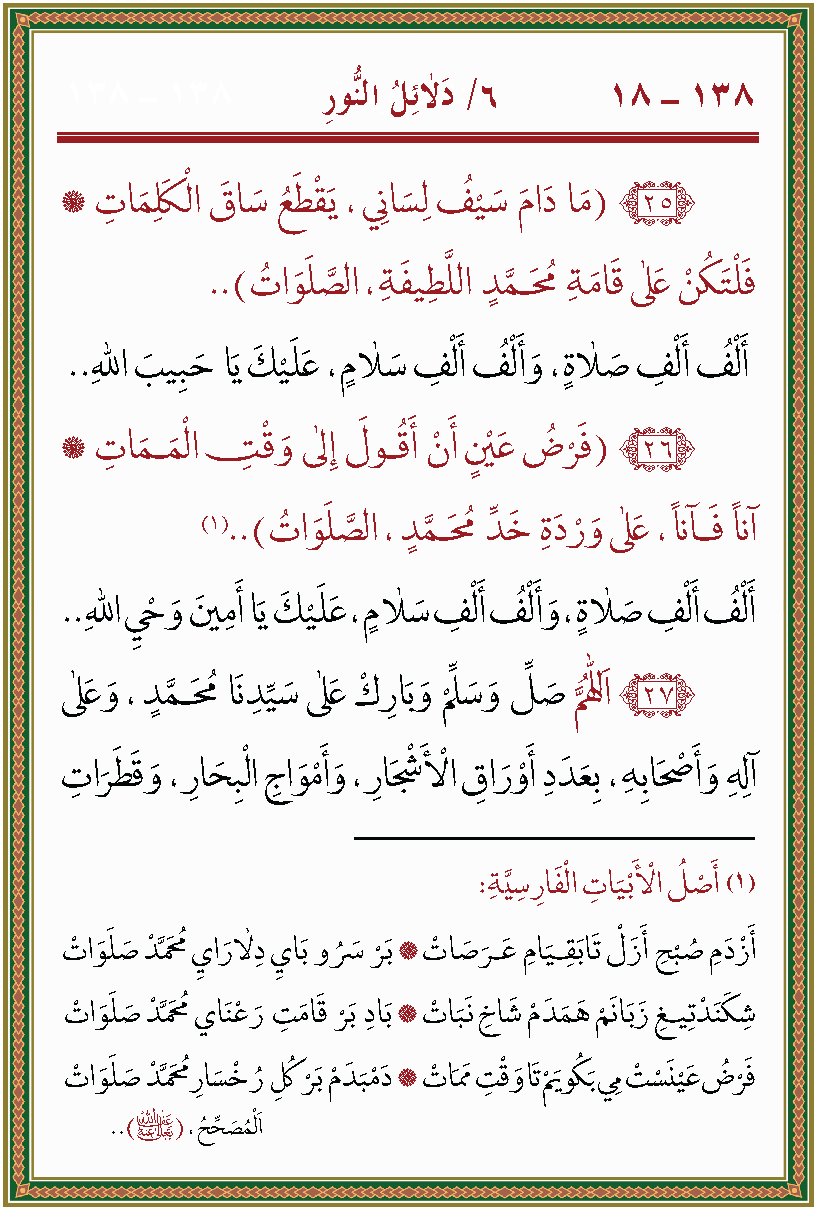 ١٣٨ – ١٨ ٦/ دَلَائِلُ النُّورِ ١٣٨ – ١٣٨
٢٥ (مَا دَامَ سَيْفُ لِسَانِي ، يَقْطَعُ سَاقَ الْكَلِمَاتِ ۞
فَلْتَكُنْ عَلٰى قَامَةِ مُحَـمَّدٍ اللَّطِيفَةِ ، الصَّلَوَاتُ)..
أَلْفُ أَلْفِ صَلَاةٍ ، وَأَلْفُ أَلْفِ سَلَامٍ ، عَلَيْكَ يَا حَبِيبَ اللهِ..
٢٦ (فَرْضُ عَيْنٍ أَنْ أَقُـولَ إِلٰى وَقْـتِ الْمَـمَاتِ ۞
آنًا فَـآنًا ، عَلٰى وَرْدَةِ خَدِّ مُحَـمَّدٍ ، الصَّلَوَاتُ)..(١)
أَلْفُ أَلْفِ صَلَاةٍ ، وَأَلْفُ أَلْفِ سَلَامٍ ، عَلَيْكَ يَا أَمِينَ وَحْيِ اللهِ..
٢٧ اَللّٰهُمَّ صَلِّ وَسَلِّمْ وَبَارِكْ عَلٰى سَيِّدِنَا مُحَـمَّدٍ ، وَعَلٰى
آلِهِ وَأَصْحَابِهِ ، بِعَدَدِ أَوْرَاقِ الْأَشْجَارِ ، وَأَمْوَاجِ الْبِحَارِ ، وَقَطَرَاتِ
(١) أَصْلُ الْأَبْيَاتِ الْفَارِسِيَّةِ:
أَزْدَمِ صُبْحِ أَزَلْ تَابَقِـيَامِ عَـرَصَاتْ ۞ بَرْ سَرُو بَايِ دِلَارَايِ مُحَمَّدْ صَلَوَاتْ
شِكَنَدْتِيـغِ زَبَانَمْ هَمَدَمْ شَاخِ نَبَاتْ ۞ بَادِ بَرْ قَامَتِ رَعْنَايِ مُحَمَّدْ صَلَوَاتْ
فَرْضُ عَيْنَسْتْ مِي بَكُويَمْ تَا وَقْتِ مَمَاتْ ۞ دَمْبَدَمْ بَرْ كُلِ رُخْسَارِ مُحَمَّدْ صَلَوَاتْ
اَلْمُصَحِّحُ ، (عَفَا اللهُ تَعَالَى عَنْهُ)..